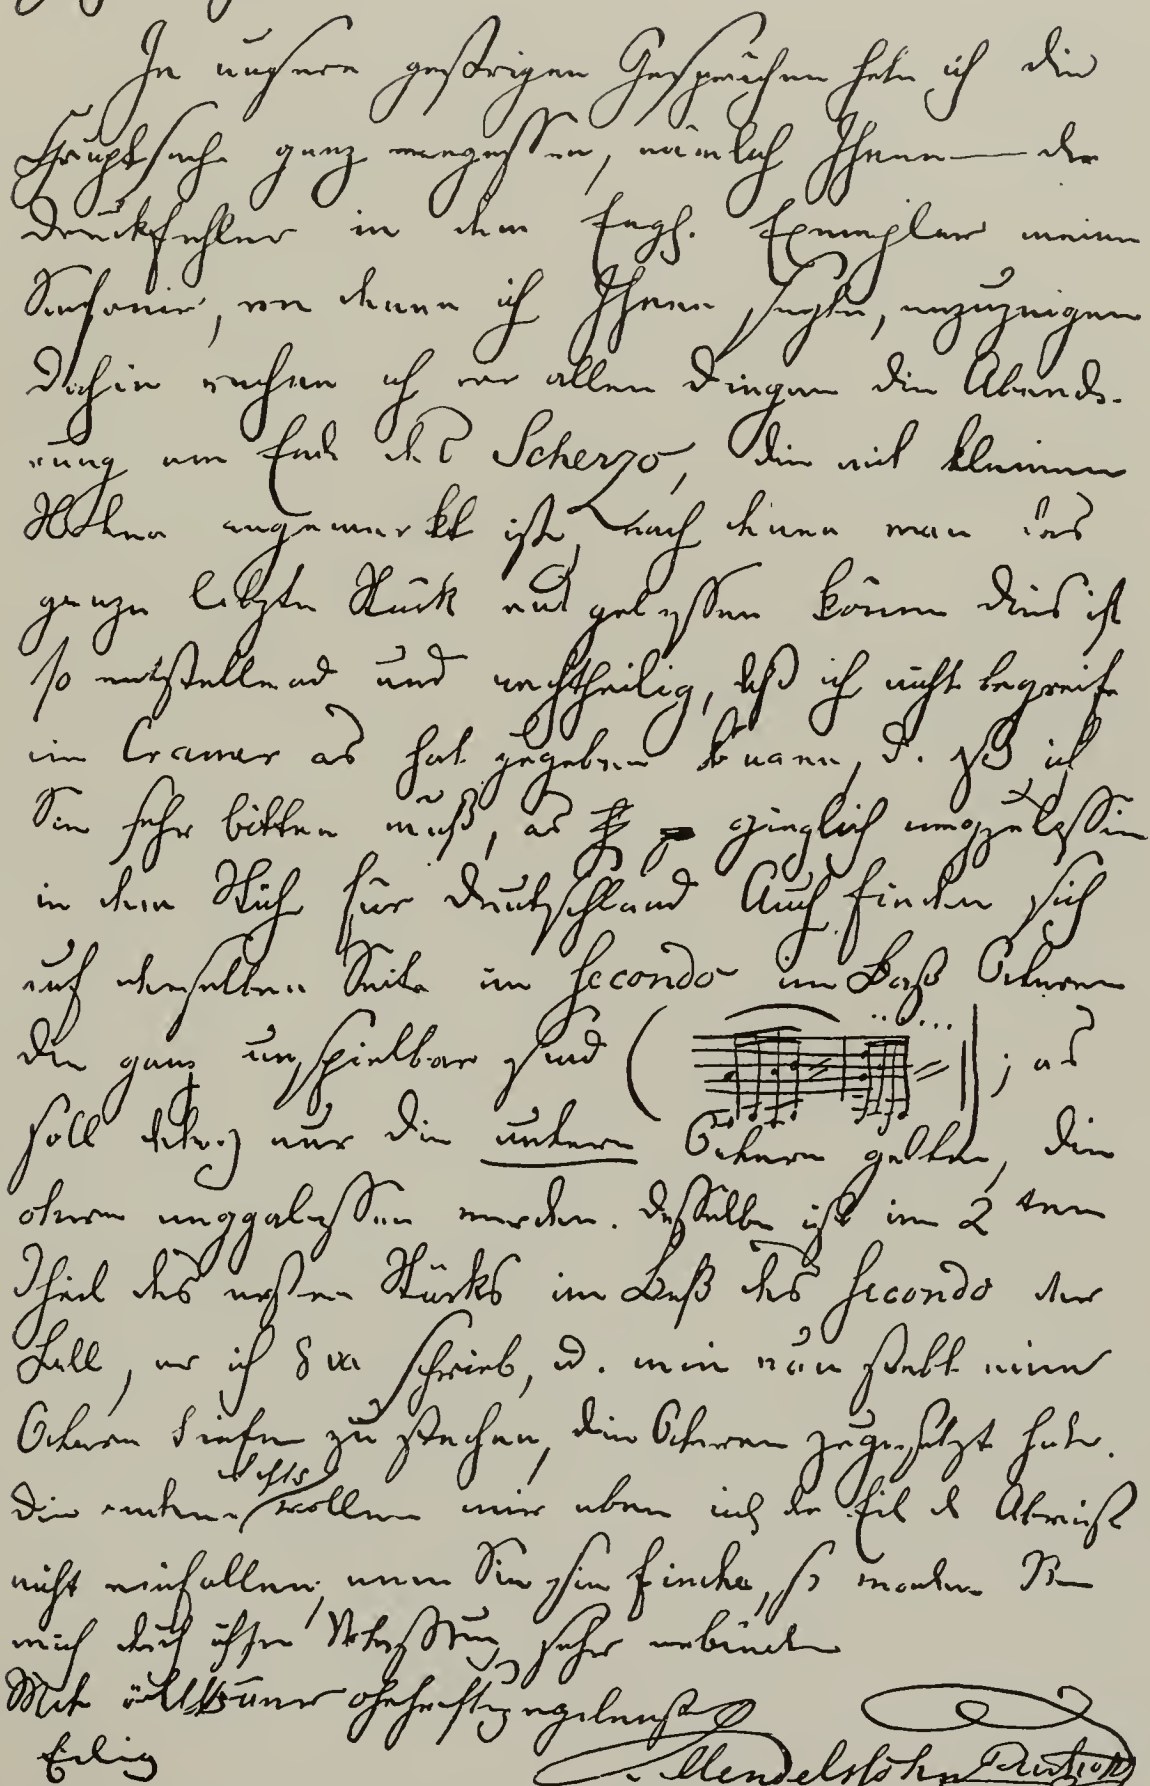 In unsern gestrigen Gesprächen habe ich die
Hauptsache ganz vergessen, nämlich Ihnen die
Druckfehler in dem Engl. Exemplar meiner
Sinfonie, von denen ich Ihnen sagte, anzuzeigen
Dahin rechne ich vor allen Dingen die Abände-
rung am Ende des Scherzo, die mit kleinen
Noten angemerkt ist, nach denen man das
ganze letzte Stück auslassen könne dies ist
so entstellend und nachtheilig, daß ich nicht begreife
wie Cramer es hat zugeben können, u. daß ich
Sie sehr bitten muß, es gänzlich wegzulassen
in dem Stich für Deutschland Auch finden sich
auf derselben Seite im Secondo im Baß Octaven
die ganz unspielbar sind ( ; es
soll aber nur die untern Octaven gelten, die
obern weggelassen werden. Dasselbe ist im 2 ten
Theil des ersten Stücks im Baß des Secondo der
Fall, wo ich 8 va schrieb, u. man nun statt eine
Octave tiefer zu stechen, die Octaven zugesetzt hat.
Die andern wollen mir eben in der Eil der Abreise
nicht einfallen, wenn Sie sie finden, so werden Sie
mich durch ihre sehr verbinden
Mit vollkommener Hochachtung ergebenst
Eilig
F. Mendelssohn Bartholdy